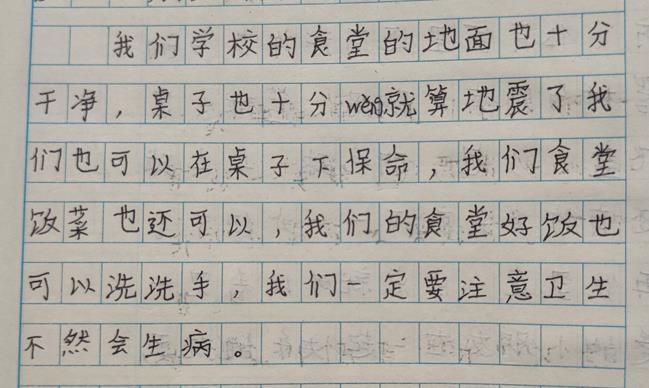 我们学校的食堂的地面也十分
干净，桌子也十分wěn就算地震了我
们也可以在桌子下保命，我们食堂
饭菜也还可以，我们的食堂好饭也
可以洗洗手，我们一定要注意卫生
不然会生病。